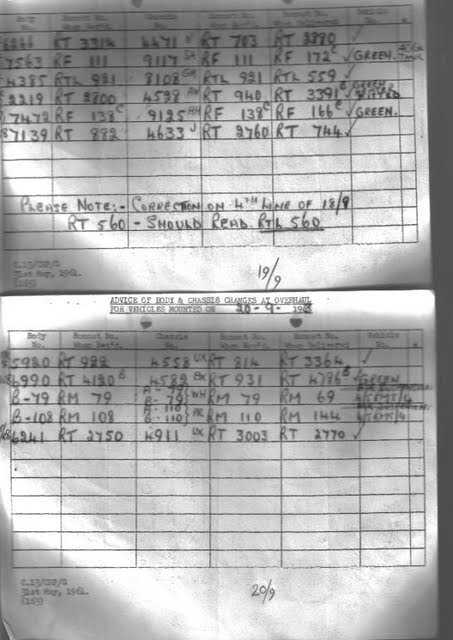 6266 RT 3314 4471 RT 703 RT 2880
7563 RF 111 9117 SA RF 111 RF 172 C GREEN.
4385 RTL 921 8108 GM RTL 921 RTL 559
2219 RT 2800 4528 RT 940 RT 3391 B GREEN
7472 RF 138 C 9125 HH RF 138 C RF 166 C GREEN.
7139 RT 882 4633 J RT 2760 RT 744
PLEASE NOTE:- CORRECTION ON 4TH LINE OF 18/9
RT 560 - SHOULD READ RTL 560
31st May, 1961.
(163)
19/9
ADVICE OF BODY & CHASSIS CHANGES AT OVERHAUL
FOR VEHICLES MOUNTED ON 20-9-
Body No. Bonnet No. When Rec'd. Chassis No. Bonnet No. When Rec'd. Bonnet No. When Delivered Vehicle No.
5920 RT 922 4558 UX RT 814 RT 3364
6990 RT 4120 B 4582 RT 931 RT 4786 B GREEN
B-79 RM 79 B-79 WH RM 79 RM 69
B-108 RM 108 B-110 RM 110 RM 144
6241 RT 2750 4911 UX RT 3003 RT 2770
31st May, 1961.
(163)
20/9